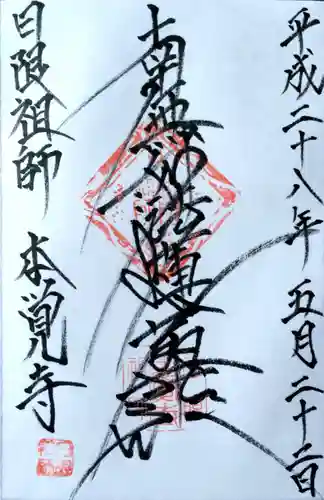 平成二十八年五月二十二日
南無妙法蓮華経
日限祖師 本覚寺